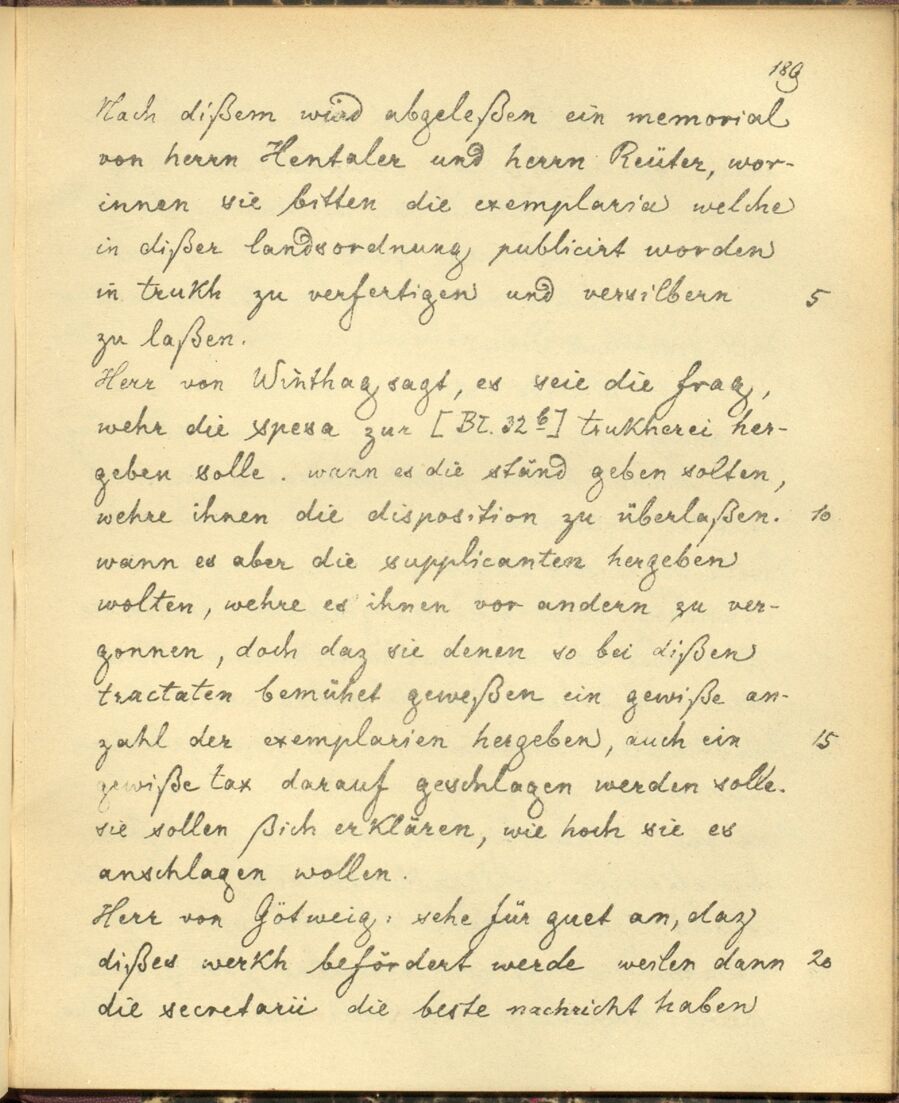 189
Nach dißem würd abgeleßen ein memorial
von herrn Hentaler und herrn Reüter, wor-
innen sie bitten die exemplaria welche
in dißer landsordnung publicirt worden
in trukh zu verfertigen und versilbern 5
zu laßen.
Herr von Winthag sagt, es seie die frag,
wehr die spesa zur [Bl. 32b] trukherei her-
geben solle. wann es die ständ geben solten,
wehre ihnen die disposition zu überlaßen. 10
wann es aber die supplicanten hergeben
wolten, wehre es ihnen vor andern zu ver-
gonnen, doch daz sie denen so bei dißen
tractaten bemühet geweßen ein gewiße an-
zahl der exemplarien hergeben, auch ein 15
gewiße tax darauf geschlagen werden solle.
sie sollen ßich erklären, wie hoch sie es
anschlagen wollen.
Herr von Götweig: sehe für guet an, daz
dißes werkh befördert werde weilen dann 20
die secretarii die beste nachricht haben